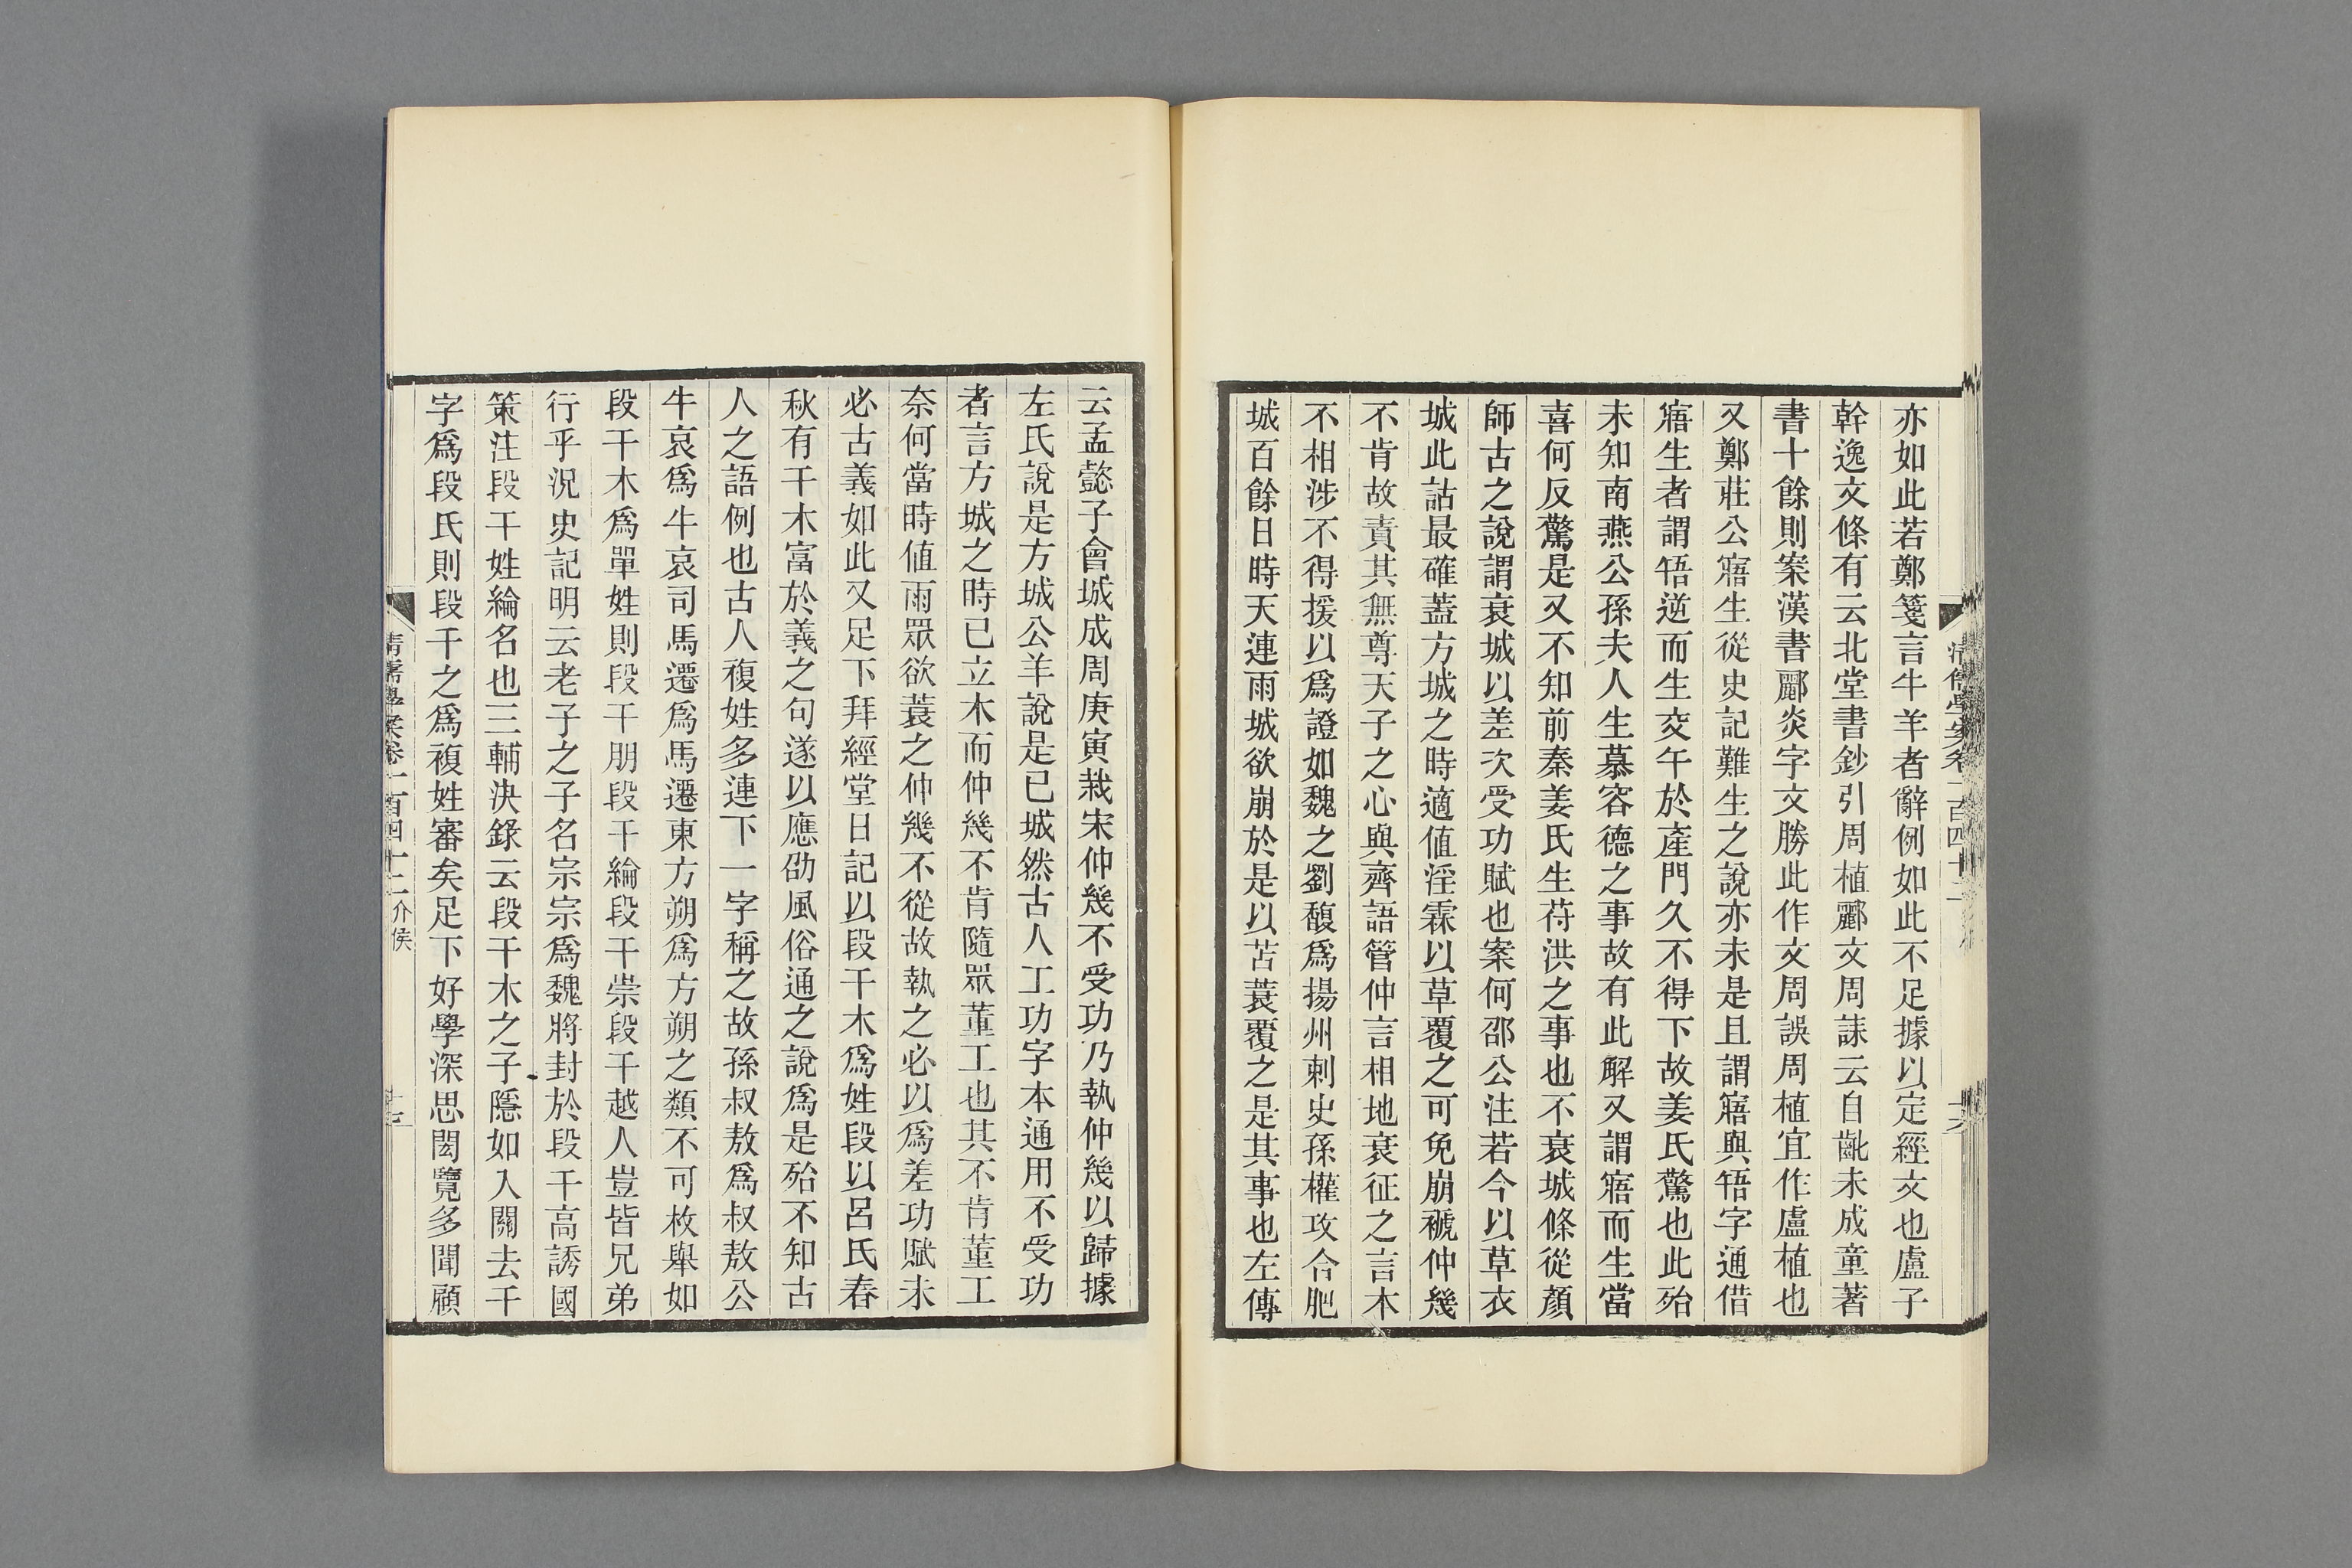 亦如此若鄭箋言牛羊者辭例如此不足據以定經文也盧子
幹逸文條有云北堂書鈔引周植酈文周誄云自齔未成童著
書十餘則案漢書酈炎字文勝此作文周誤周植宜作盧植也
又鄭莊公寤生從史記難生之說亦未是且謂寤與牾字通借
寤生者謂牾逆而生交午於產門久不得下故姜氏驚也此殆
未知南燕公孫夫人生慕容德之事故有此解又謂寤而生當
喜何反驚是又不知前秦姜氏生苻洪之事也不衰城條從顏
師古之說謂衰城以差次受功賦也案何邵公注若今以草衣
城此詁最確蓋方城之時適值淫霖以草覆之可免崩褫仲幾
不肯故責其無尊天子之心與齊語管仲言相地衰征之言木
不相涉不得援以爲證如魏之劉馥爲揚州刺史孫權攻合肥
城百餘日時天連雨城欲崩於是以苫蓑覆之是其事也左傳
清儒學案卷一百四十二 十六
云孟懿子會城成周庚寅栽宋仲幾不受功乃執仲幾以歸據
左氏說是方城公羊說是已城然古人工功字本通用不受功
者言方城之時已立木而仲幾不肯隨眾董工也其不肯董工
奈何當時值雨眾欲蓑之仲幾不從故執之必以爲差功賦未
必古義如此又足下拜經堂日記以段干木爲姓段以呂氏春
秋有干木富於義之句遂以應劭風俗通之說爲是殆不知古
人之語例也古人複姓多連下一字稱之故孫叔敖爲叔敖公
牛哀爲牛哀司馬遷爲馬遷東方朔爲方朔之類不可枚舉如
段干木爲單姓則段干朋段干綸段干崇段干越人豈皆兄弟
行乎況史記明云老子之子名宗宗爲魏將封於段干高誘國
策注段干姓綸名也三輔決錄云段干木之子隱如入關去干
字爲段氏則段干之爲複姓審矣足下好學深思閎覽多聞願
清儒學案卷一百四十二 介侯 十七